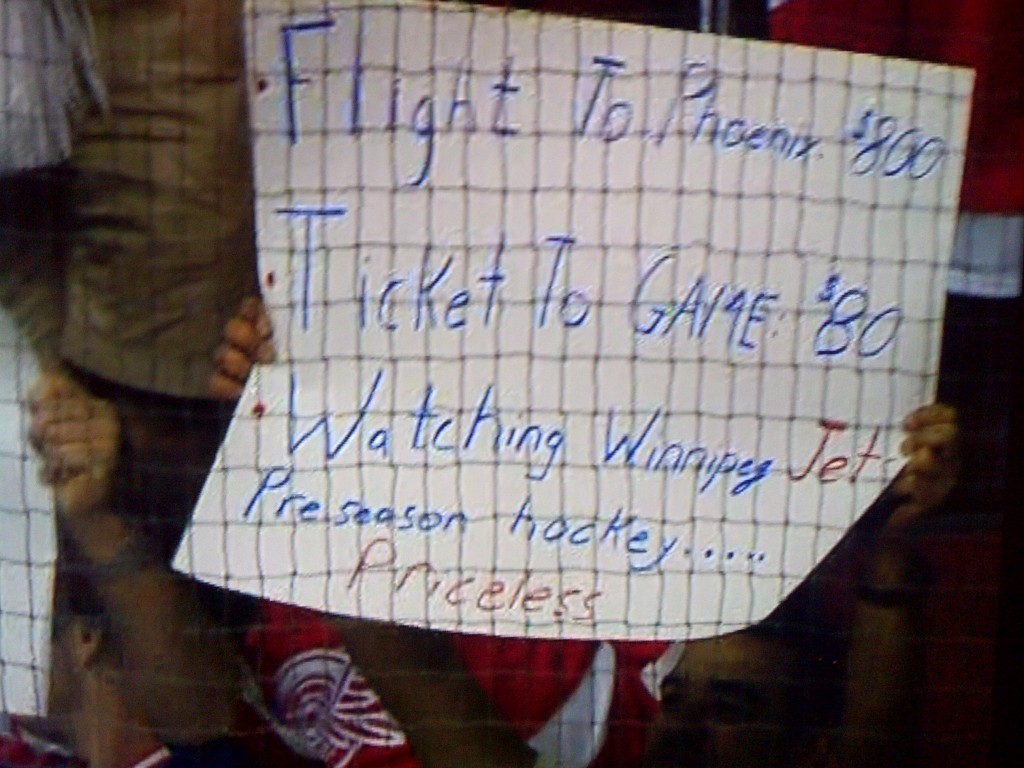 • Flight To Phoenix. $800
• Ticket To GAME: $80
• Watching Winnipeg Jets
Preseason hockey.....
Priceless